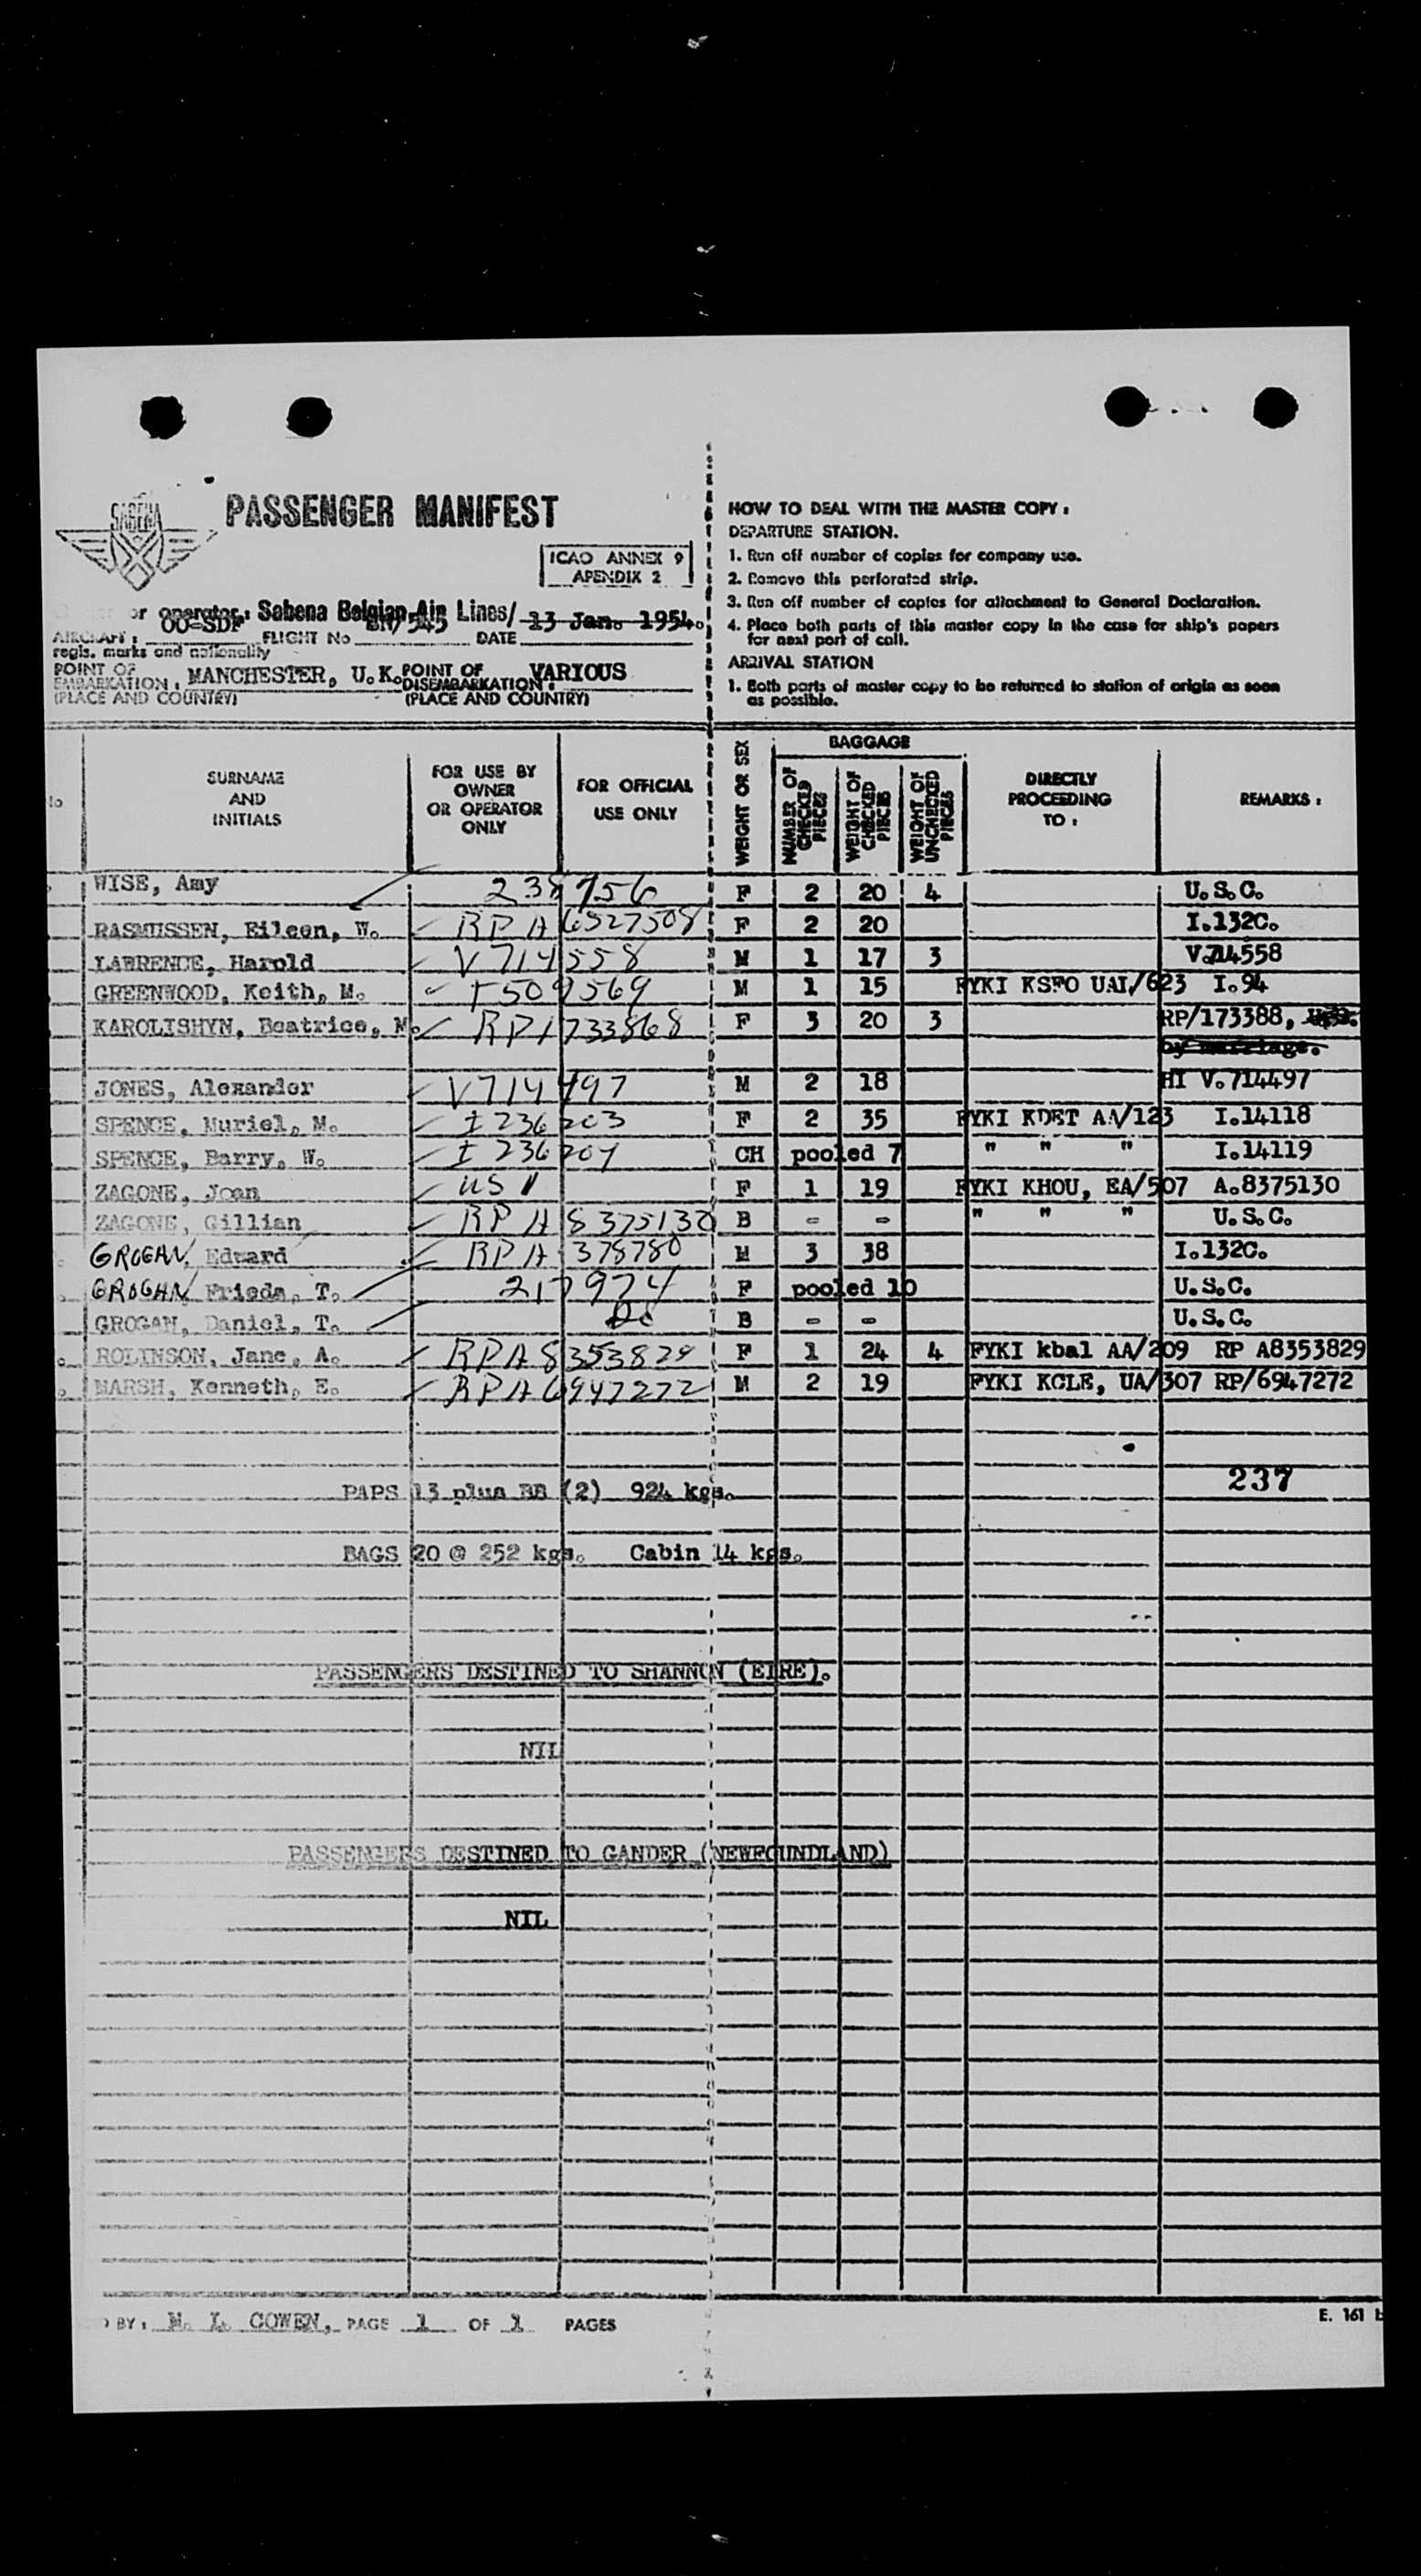 SABENA
PASSENGER MANIFEST
ICAO ANNEX 9
APENDIX 2
or operator: Sabena Belgian Air Lines/ 13 Jan. 1954.
OO-SDF SN/545
AIRCRAFT: FLIGHT No DATE
regis. marks and nationality
POINT OF EMBARKATION: MANCHESTER, U.K. POINT OF DISEMBARKATION: VARIOUS
(PLACE AND COUNTRY) (PLACE AND COUNTRY)
HOW TO DEAL WITH THE MASTER COPY:
DEPARTURE STATION.
1. Run off number of copies for company use.
2. Remove this perforated strip.
3. Run off number of copies for attachment to General Declaration.
4. Place both parts of this master copy in the case for ship's papers
for next port of call.
ARRIVAL STATION
1. Both parts of master copy to be returned to station of origin as soon
as possible.
SURNAME AND INITIALS
FOR USE BY OWNER OR OPERATOR ONLY
FOR OFFICIAL USE ONLY
WEIGHT OR SEX
BAGGAGE
NUMBER OF CHECKED PIECES
WEIGHT OF CHECKED PIECES
WEIGHT OF UNCHECKED PIECES
DIRECTLY PROCEEDING TO:
REMARKS:
WISE, Amy 238756 F 2 20 4 U.S.C.
RASMUSSEN, Eileen, W. RP A6527508 F 2 20 I.132C.
LAWRENCE, Harold V714558 M 1 17 3 V.714558
GREENWOOD, Keith, M. T509569 M 1 15 FYKI KSFO UAI/623 I.94
KAROLISHYN, Beatrice, M. RP1733868 F 3 20 3 RP/173388,
by marriage.
JONES, Alexander V714497 M 2 18 HI V.714497
SPENCE, Muriel, M. I 236203 F 2 35 FYKI KDET AA/123 I.14118
SPENCE, Barry, W. I 236204 CH pooled 7 " " " I.14119
ZAGONE, Joan US F 1 19 FYKI KHOU, EA/507 A.8375130
ZAGONE, Gillian RP A8375130 B - - " " " U.S.C.
GROGAN, Edward RP A 378780 M 3 38 I.132C.
GROGAN Frieda, T. 217974 F pooled 10 U.S.C.
GROGAN, Daniel, T. Do B - - U.S.C.
ROLINSON, Jane, A. RPA8353829 F 1 24 4 FYKI kbal AA/209 RP A8353829
MARSH, Kenneth, E. RPA6947272 M 2 19 FYKI KCLE, UA/307 RP/6947272
237
PAPS 13 plus BB (2) 924 kgs.
BAGS 20 @ 252 kgs. Cabin 14 kgs.
PASSENGERS DESTINED TO SHANNON (EIRE).
NIL
PASSENGERS DESTINED TO GANDER (NEWFOUNDLAND)
NIL
BY: M. L. COWEN, PAGE 1 OF 1 PAGES
E. 161